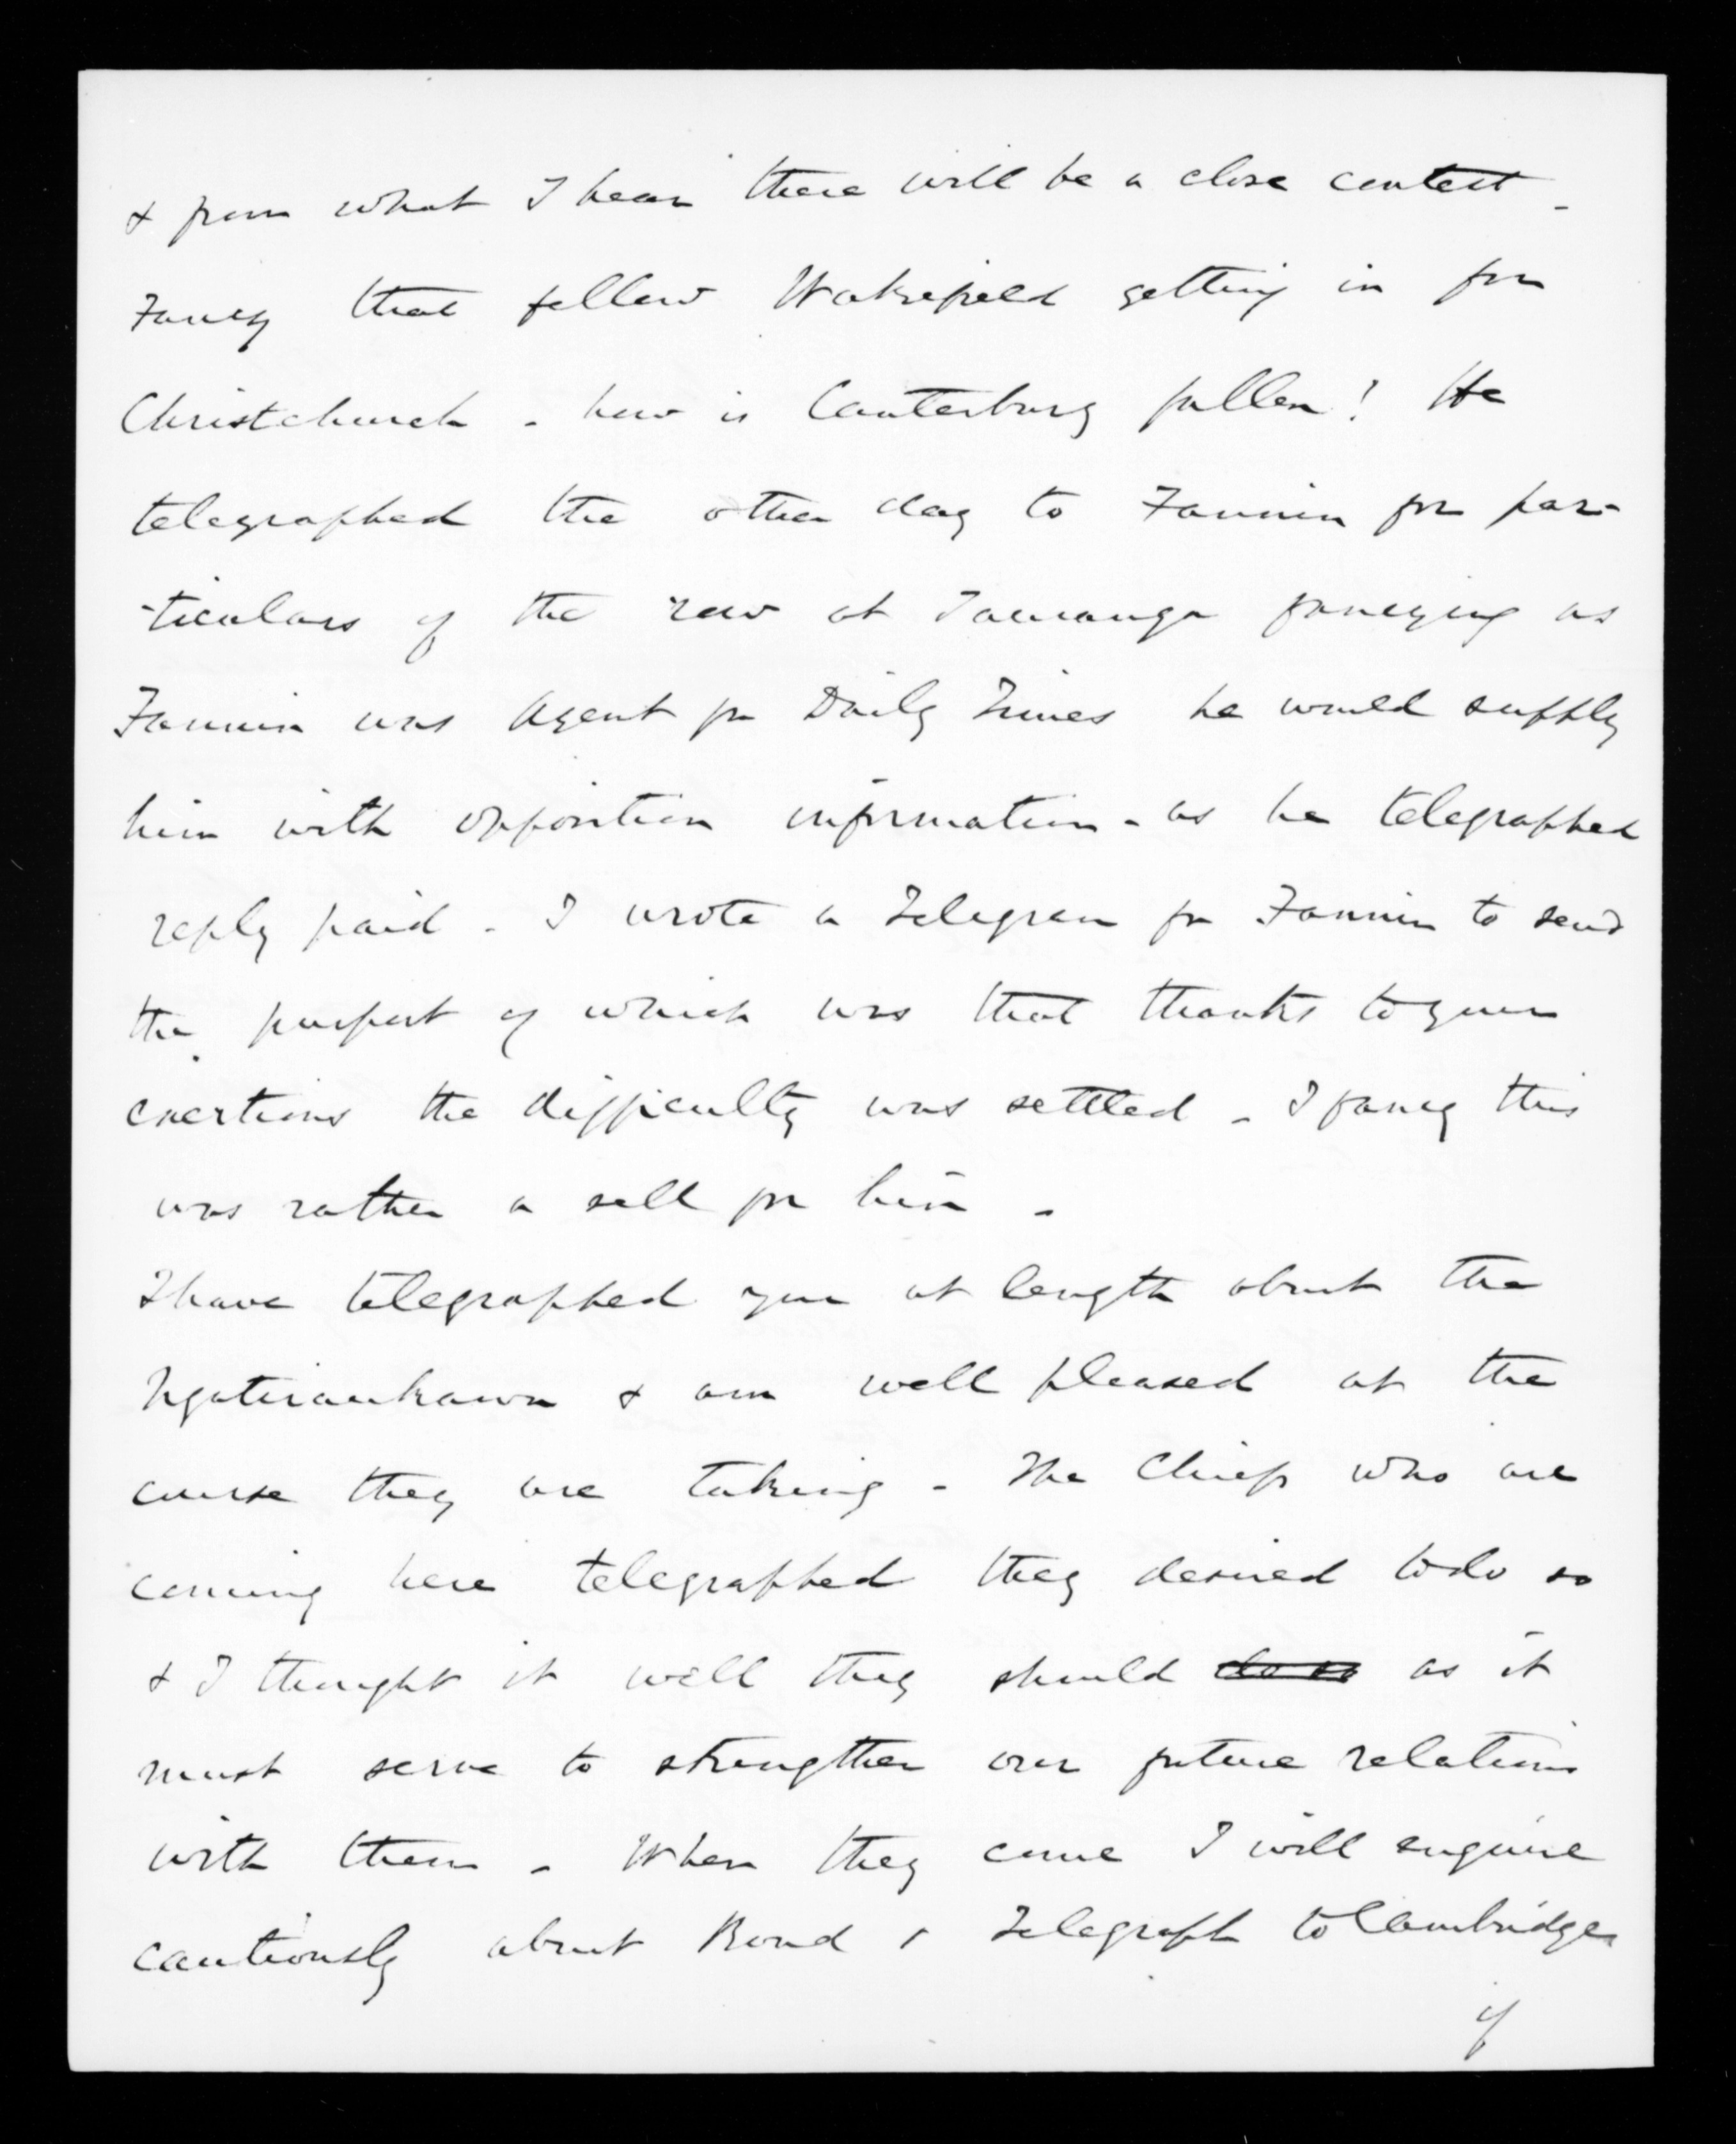 & from what I hear there will be a close contest -
Fancy that fellow Wakefield getting in for
Christchurch - how is Canterbury fallen! He
telegraphed the other day to Fannin for par-
-ticulars of the row at Tauranga fancying as
Fannin was Agent for Daily Times he would supply
him with opposition information - as he telegraphed
reply paid - I wrote a Telegram for Fannin to send
the purport of which was that thanks to your
exertions the difficulty was settled - I fancy this
was rather a sell for him -
I have telegraphed you at length about the
Ngatiraukawa & am well pleased at the
course they are taking - The Chiefs who are
coming here telegraphed they desired to do so
& I thought it well they should do so as it
must serve to strengthen our future relations
with them - When they come I will enquire
cautiously about Bond & Telegraph to Cambridge
if